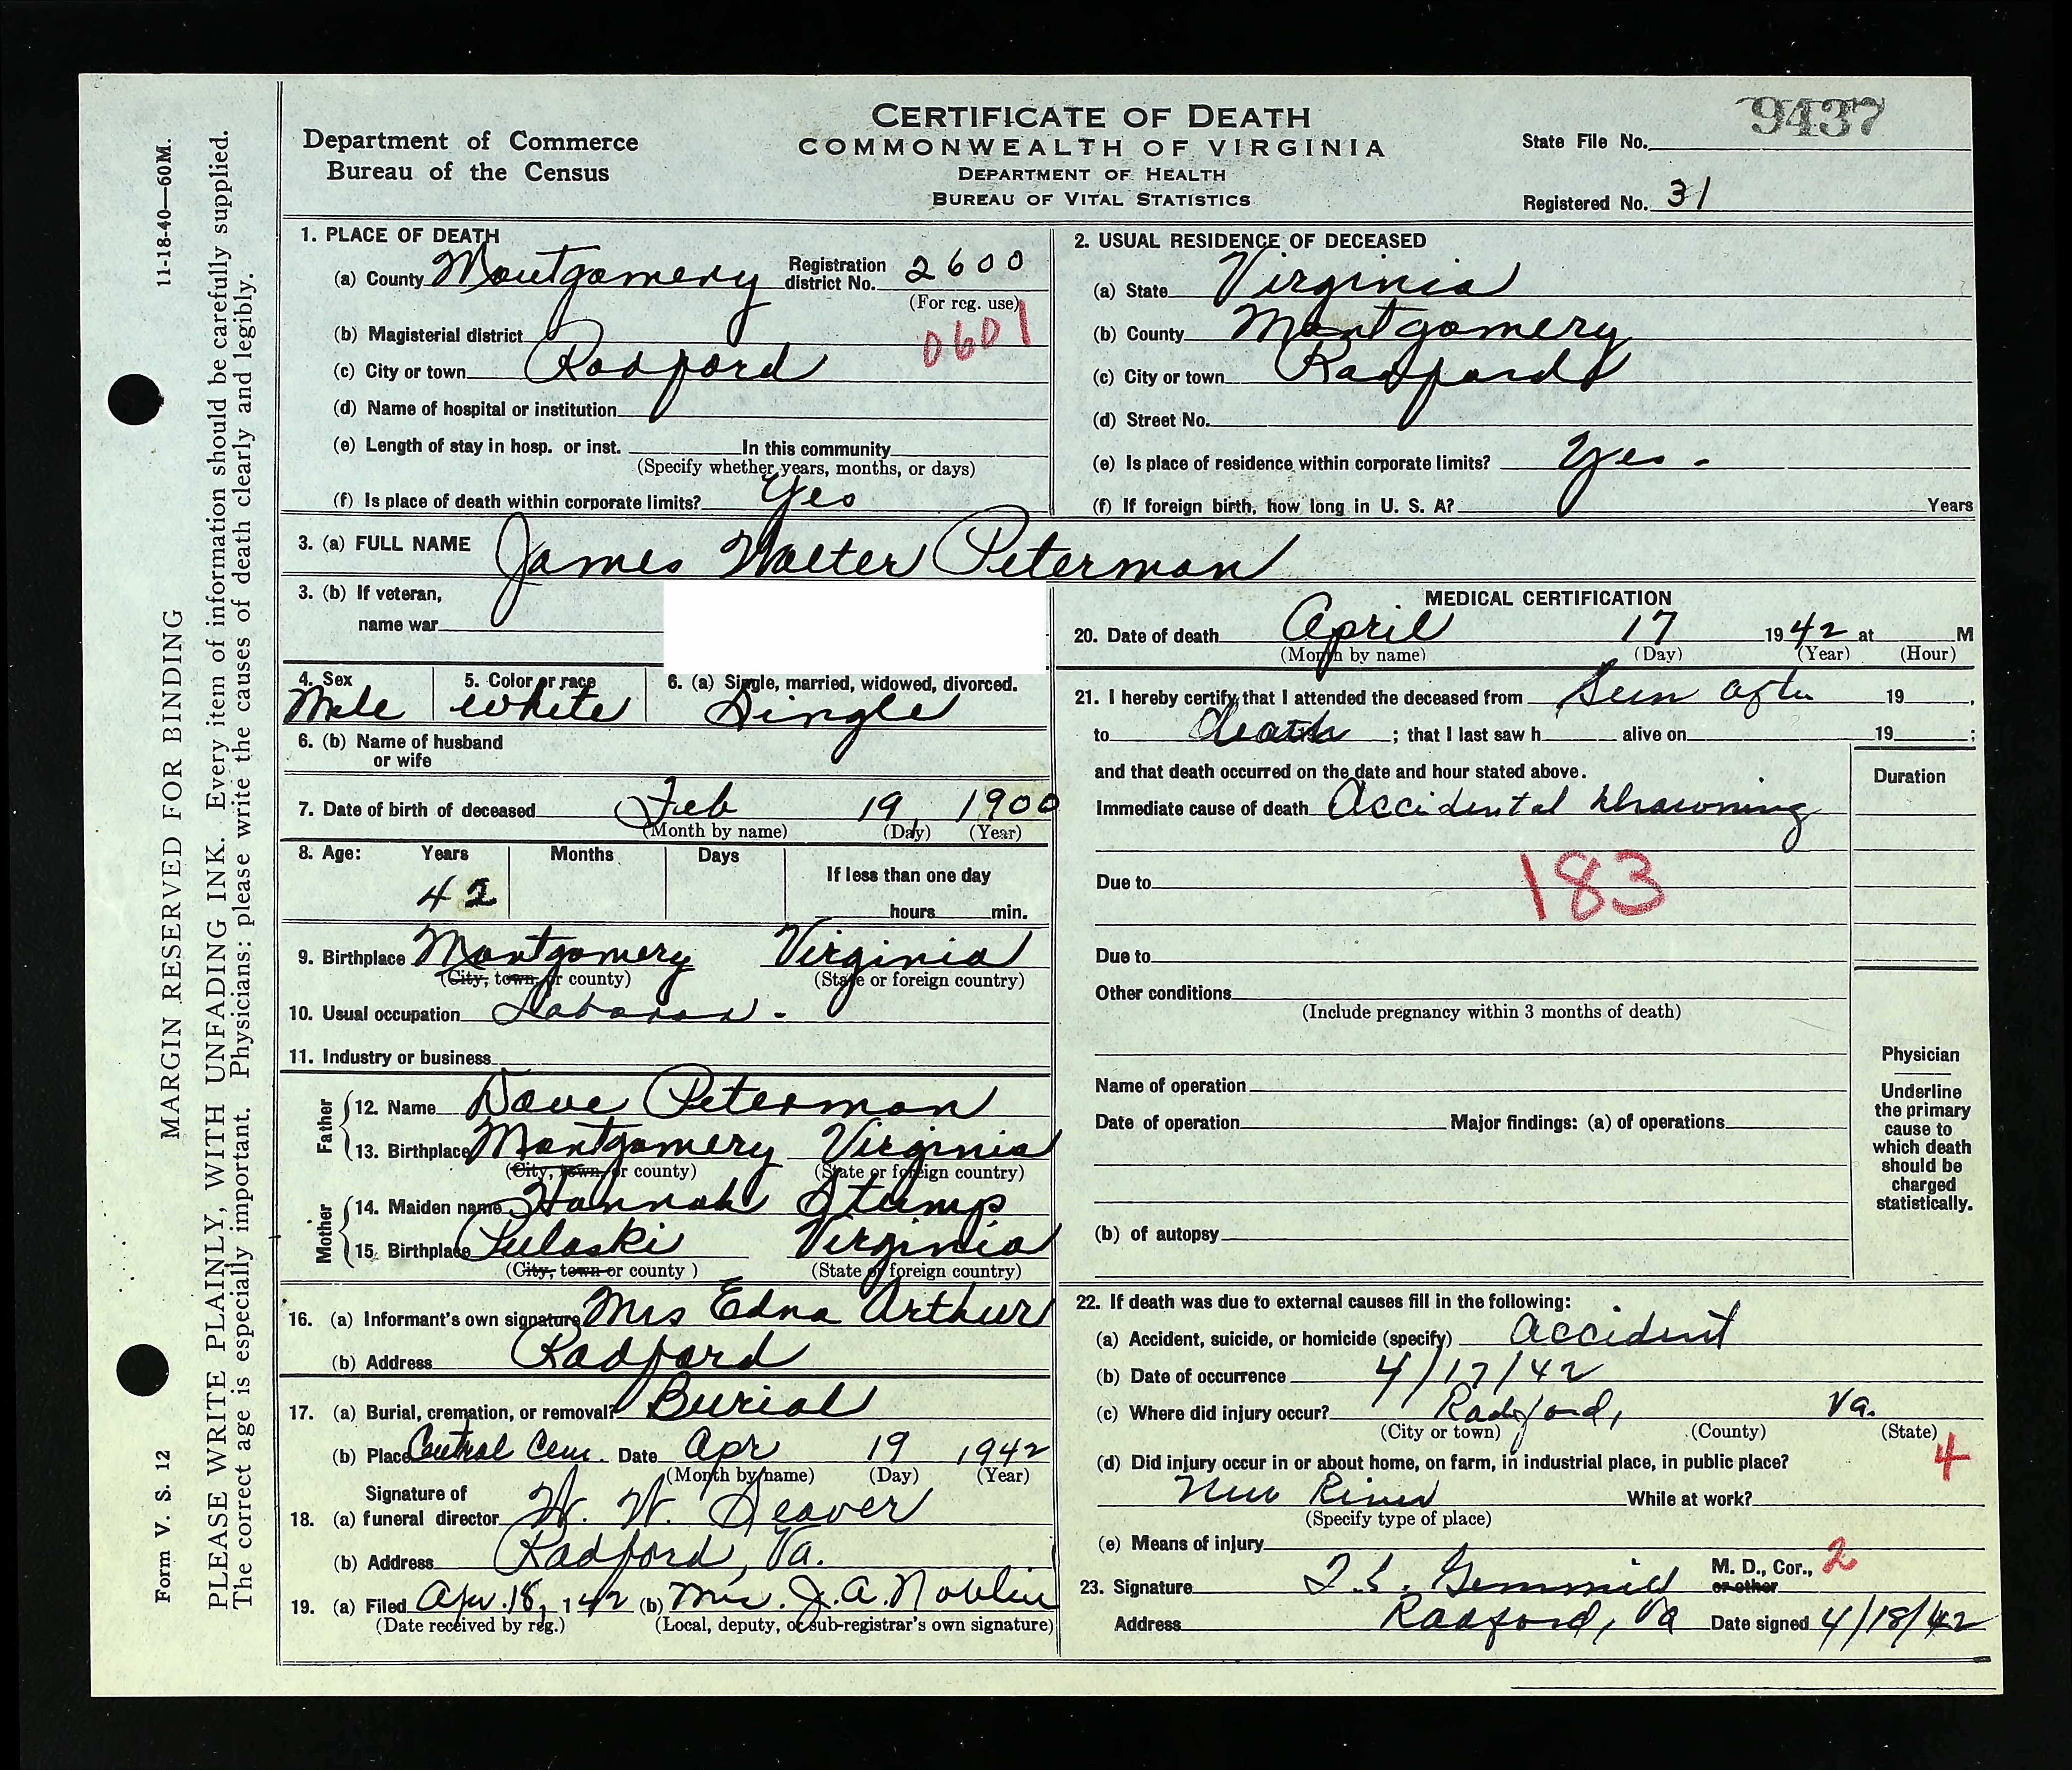 CERTIFICATE OF DEATH
COMMONWEALTH OF VIRGINIA
DEPARTMENT OF HEALTH
BUREAU OF VITAL STATISTICS
Department of Commerce
Bureau of the Census
State File No. 9437
Registered No. 31
11-18-40—60M.
MARGIN RESERVED FOR BINDING
PLEASE WRITE PLAINLY, WITH UNFADING INK. Every item of information should be carefully supplied.
The correct age is especially important. Physicians: please write the causes of death clearly and legibly.
Form V. S. 12
1. PLACE OF DEATH
(a) County Montgomery Registration district No. 2600
(For reg. use)
0601
(b) Magisterial district
(c) City or town Radford
(d) Name of hospital or institution
(e) Length of stay in hosp. or inst. In this community
(Specify whether years, months, or days)
(f) Is place of death within corporate limits? Yes
2. USUAL RESIDENCE OF DECEASED
(a) State Virginia
(b) County Montgomery
(c) City or town Radford
(d) Street No.
(e) Is place of residence within corporate limits? Yes -
(f) If foreign birth, how long in U. S. A? Years
3. (a) FULL NAME James Walter Peterman
3. (b) If veteran,
name war
4. Sex Male
5. Color or race White
6. (a) Single, married, widowed, divorced. Single
6. (b) Name of husband
or wife
7. Date of birth of deceased Feb 19 1900
(Month by name) (Day) (Year)
8. Age: Years Months Days
If less than one day
42
hours min.
9. Birthplace Montgomery Virginia
(City, town, or county) (State or foreign country)
10. Usual occupation Laborer -
11. Industry or business
Father
12. Name Dave Peterman
13. Birthplace Montgomery Virginia
(City, town or county) (State or foreign country)
Mother
14. Maiden name Hannah Stump
15. Birthplace Pulaski Virginia
(City, town or county) (State or foreign country)
16. (a) Informant's own signature Mrs Edna Arthur
(b) Address Radford
17. (a) Burial, cremation, or removal? Burial
(b) Place Central Cem. Date Apr 19 1942
(Month by name) (Day) (Year)
Signature of
18. (a) funeral director W. W. Seaver
(b) Address Radford, Va.
19. (a) Filed Apr. 18, 1942 (b) Mrs. J. A. Noblin
(Date received by reg.) (Local, deputy, or sub-registrar's own signature)
MEDICAL CERTIFICATION
20. Date of death April 17 1942 at M
(Month by name) (Day) (Year) (Hour)
21. I hereby certify that I attended the deceased from Seen after 19 ,
to death ; that I last saw h alive on 19 ;
and that death occurred on the date and hour stated above.
Duration
Immediate cause of death Accidental drowning
Due to 183
Due to
Other conditions
(Include pregnancy within 3 months of death)
Name of operation
Date of operation Major findings: (a) of operations
(b) of autopsy
Physician
Underline
the primary
cause to
which death
should be
charged
statistically.
22. If death was due to external causes fill in the following:
(a) Accident, suicide, or homicide (specify) Accident
(b) Date of occurrence 4/17/42
(c) Where did injury occur? Radford, Va.
(City or town) (County) (State)
(d) Did injury occur in or about home, on farm, in industrial place, in public place? 4
New River While at work?
(Specify type of place)
(e) Means of injury
23. Signature Gemmill M. D., Cor., 2
or other
Address Radford, Va Date signed 4/18/42